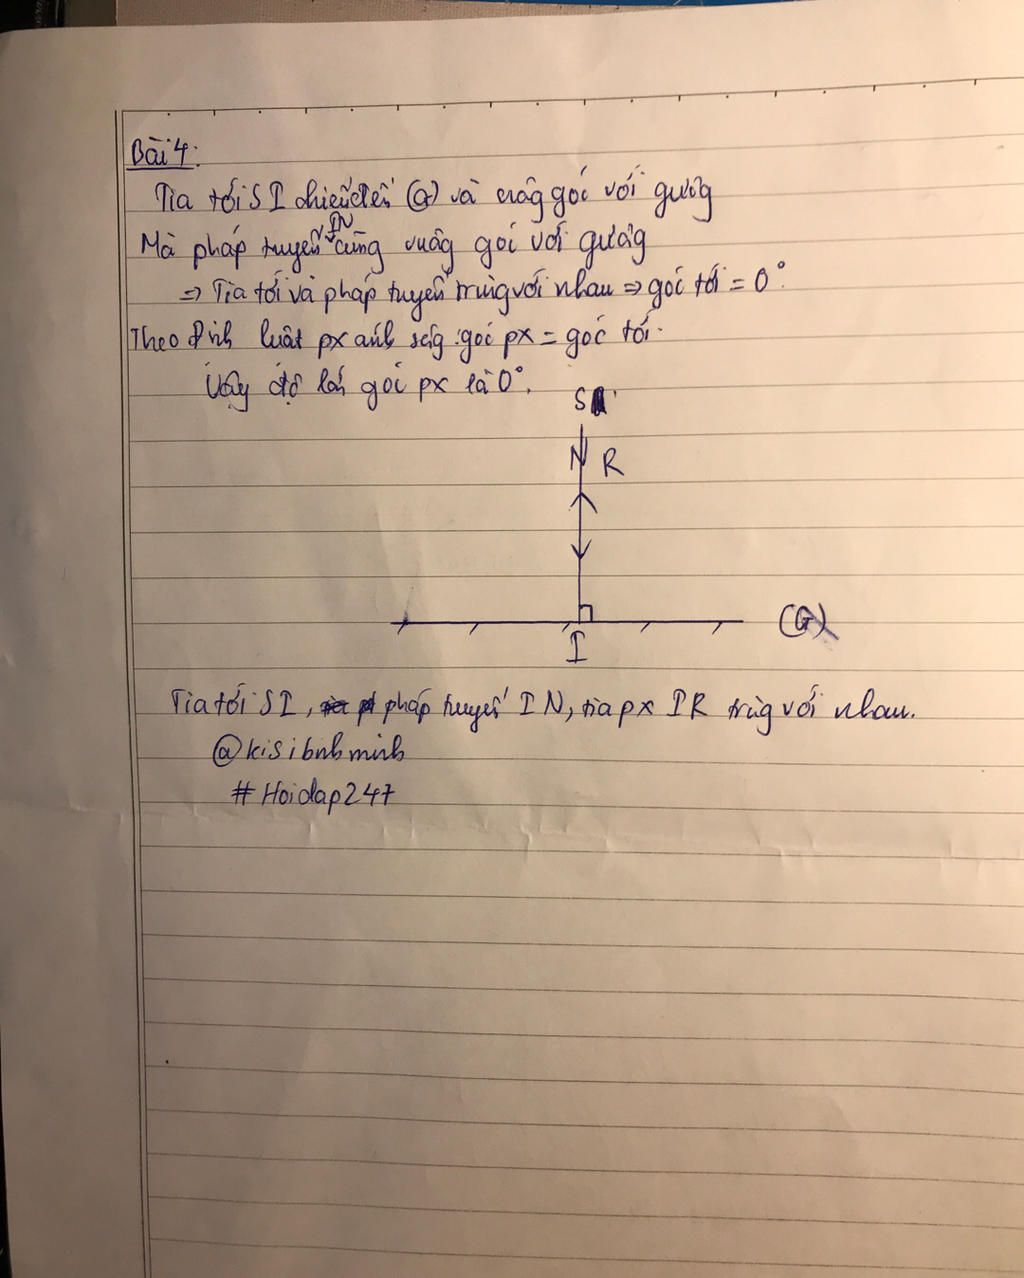 Bài 4:
Tia tới SI chiếu đến (G) và vuông góc với gương
Mà pháp tuyến IN cũng vuông góc với gương
=> Tia tới và pháp tuyến trùng với nhau => góc tới = 0°.
Theo định luật px ánh sáng: góc px = góc tới.
Vậy độ lớn góc px là 0°.
S
N R
(G)
I
Tia tới SI, pháp tuyến IN, tia px IR trùng với nhau.
@kisibinhminh
#Hoidap247